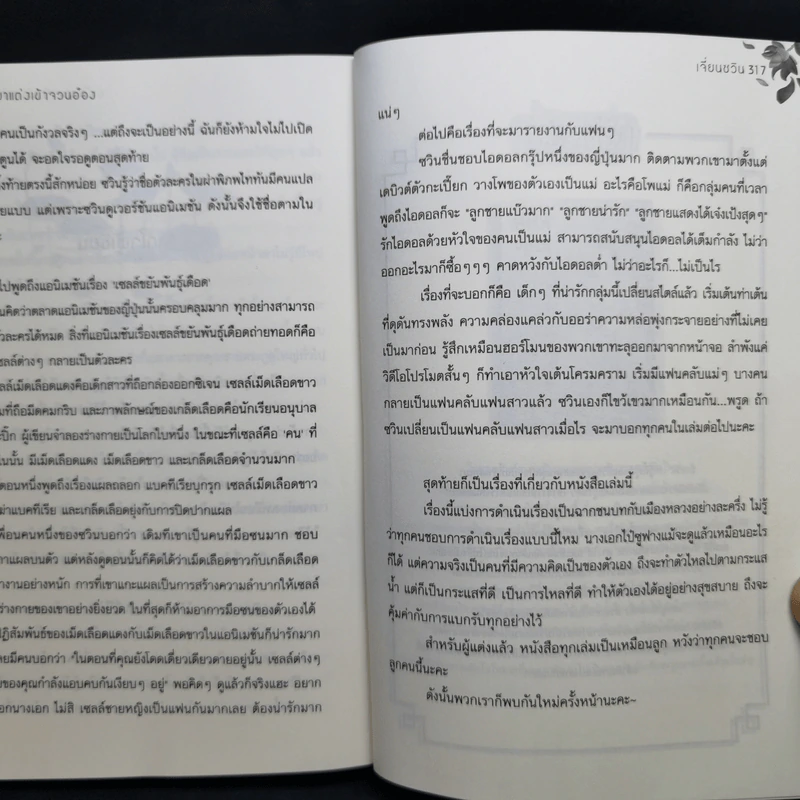 มาแต่งเข้าจวนอ๋อง
คนเป็นกังวลจริงๆ ...แต่ถึงจะเป็นอย่างนี้ ฉันก็ยังห้ามใจไม่ไปเปิด
ดูนได้ จะอดใจรอดูตอนสุดท้าย
งท้ายตรงนี้สักหน่อย ซวินรู้ว่าชื่อตัวละครในผ่าพิภพไททันมีคนแปล
ยแบบ แต่เพราะซวินดูเวอร์ชันแอนิเมชัน ดังนั้นจึงใช้ชื่อตามใน
ะ
ไปพูดถึงแอนิเมชันเรื่อง 'เซลล์ขยันพันธุ์เดือด'
นคิดว่าตลาดแอนิเมชันของญี่ปุ่นนั้นครอบคลุมมาก ทุกอย่างสามารถ
วละครได้หมด สิ่งที่แอนิเมชันเรื่องเซลล์ขยันพันธุ์เดือดถ่ายทอดก็คือ
ซลล์ต่างๆ กลายเป็นตัวละคร
ลล์เม็ดเลือดแดงคือเด็กสาวที่ถือกล่องออกซิเจน เซลล์เม็ดเลือดขาว
มที่ถือมีดคมกริบ และภาพลักษณ์ของเกล็ดเลือดคือนักเรียนอนุบาล
ะปิ๊ก ผู้เขียนจำลองร่างกายเป็นโลกใบหนึ่ง ในขณะที่เซลล์คือ 'คน' ที่
ในนั้น มีเม็ดเลือดแดง เม็ดเลือดขาว และเกล็ดเลือดจำนวนมาก
ตอนหนึ่งพูดถึงเรื่องแผลถลอก แบคทีเรียบุกรุก เซลล์เม็ดเลือดขาว
ฆ่าแบคทีเรีย และเกล็ดเลือดยุ่งกับการปิดปากแผล
พื่อนคนหนึ่งของซวินบอกว่า เดิมทีเขาเป็นคนที่มือซนมาก ชอบ
าแผลบนตัว แต่หลังดูตอนนั้นก็คิดได้ว่าเม็ดเลือดขาวกับเกล็ดเลือด
งานอย่างหนัก การที่เขาแกะแผลเป็นการสร้างความลำบากให้เซลล์
ร่างกายของเขาอย่างยิ่งยวด ในที่สุดก็ห้ามอาการมือซนของตัวเองได้
ปฏิสัมพันธ์ของเม็ดเลือดแดงกับเม็ดเลือดขาวในแอนิเมชันก็น่ารักมาก
ลยมีคนบอกว่า "ในตอนที่คุณยังโดดเดี่ยวเดียวดายอยู่นั้น เซลล์ต่างๆ
ยของคุณกำลังแอบคบกันเงียบๆ อยู่" พอคิดๆ ดูแล้วก็จริงแฮะ อยาก
อกนางเอก ไม่สิ เซลล์ชายหญิงเป็นแฟนกันมากเลย ต้องน่ารักมาก
เจี่ยนซวิน 317
แน่ๆ
ต่อไปคือเรื่องที่จะมารายงานกับแฟนๆ
ซวินชื่นชอบไอดอลกรุ๊ปหนึ่งของญี่ปุ่นมาก ติดตามพวกเขามาตั้งแต่
เดบิวต์ตัวกะเปี๊ยก วางโพของตัวเองเป็นแม่ อะไรคือโพแม่ ก็คือกลุ่มคนที่เวลา
พูดถึงไอดอลก็จะ "ลูกชายแบ๊วมาก" "ลูกชายน่ารัก" "ลูกชายแสดงได้เจ๋งเป้งสุดๆ"
รักไอดอลด้วยหัวใจของคนเป็นแม่ สามารถสนับสนุนไอดอลได้เต็มกำลัง ไม่ว่า
ออกอะไรมาก็ซื้อๆๆๆ คาดหวังกับไอดอลต่ำ ไม่ว่าอะไรก็...ไม่เป็นไร
เรื่องที่จะบอกก็คือ เด็กๆ ที่น่ารักกลุ่มนี้เปลี่ยนสไตล์แล้ว เริ่มเต้นท่าเต้น
ที่ดุดันทรงพลัง ความคล่องแคล่วกับออร่าความหล่อพุ่งกระจายอย่างที่ไม่เคย
เป็นมาก่อน รู้สึกเหมือนฮอร์โมนของพวกเขาทะลุออกมาจากหน้าจอ ลำพังแค่
วิดีโอโปรโมตสั้นๆ ก็ทำเอาหัวใจเต้นโครมคราม เริ่มมีแฟนคลับแม่ๆ บางคน
กลายเป็นแฟนคลับแฟนสาวแล้ว ซวินเองก็ไขว้เขวมากเหมือนกัน...พรูด ถ้า
ซวินเปลี่ยนเป็นแฟนคลับแฟนสาวเมื่อไร จะมาบอกทุกคนในเล่มต่อไปนะคะ
สุดท้ายก็เป็นเรื่องที่เกี่ยวกับหนังสือเล่มนี้
เรื่องนี้แบ่งการดำเนินเรื่องเป็นฉากชนบทกับเมืองหลวงอย่างละครึ่ง ไม่รู้
ว่าทุกคนชอบการดำเนินเรื่องแบบนี้ไหม นางเอกไป๋ซูฟางแม้จะดูแล้วเหมือนอะไร
ก็ได้ แต่ความจริงเป็นคนที่มีความคิดเป็นของตัวเอง ถึงจะทำตัวไหลไปตามกระแส
น้ำ แต่ก็เป็นกระแสที่ดี เป็นการไหลที่ดี ทำให้ตัวเองได้อยู่อย่างสุขสบาย ถึงจะ
คุ้มค่ากับการแบกรับทุกอย่างไว้
สำหรับผู้แต่งแล้ว หนังสือทุกเล่มเป็นเหมือนลูก หวังว่าทุกคนจะชอบ
ลูกคนนี้นะคะ
ดังนั้นพวกเราก็พบกันใหม่ครั้งหน้านะคะ~